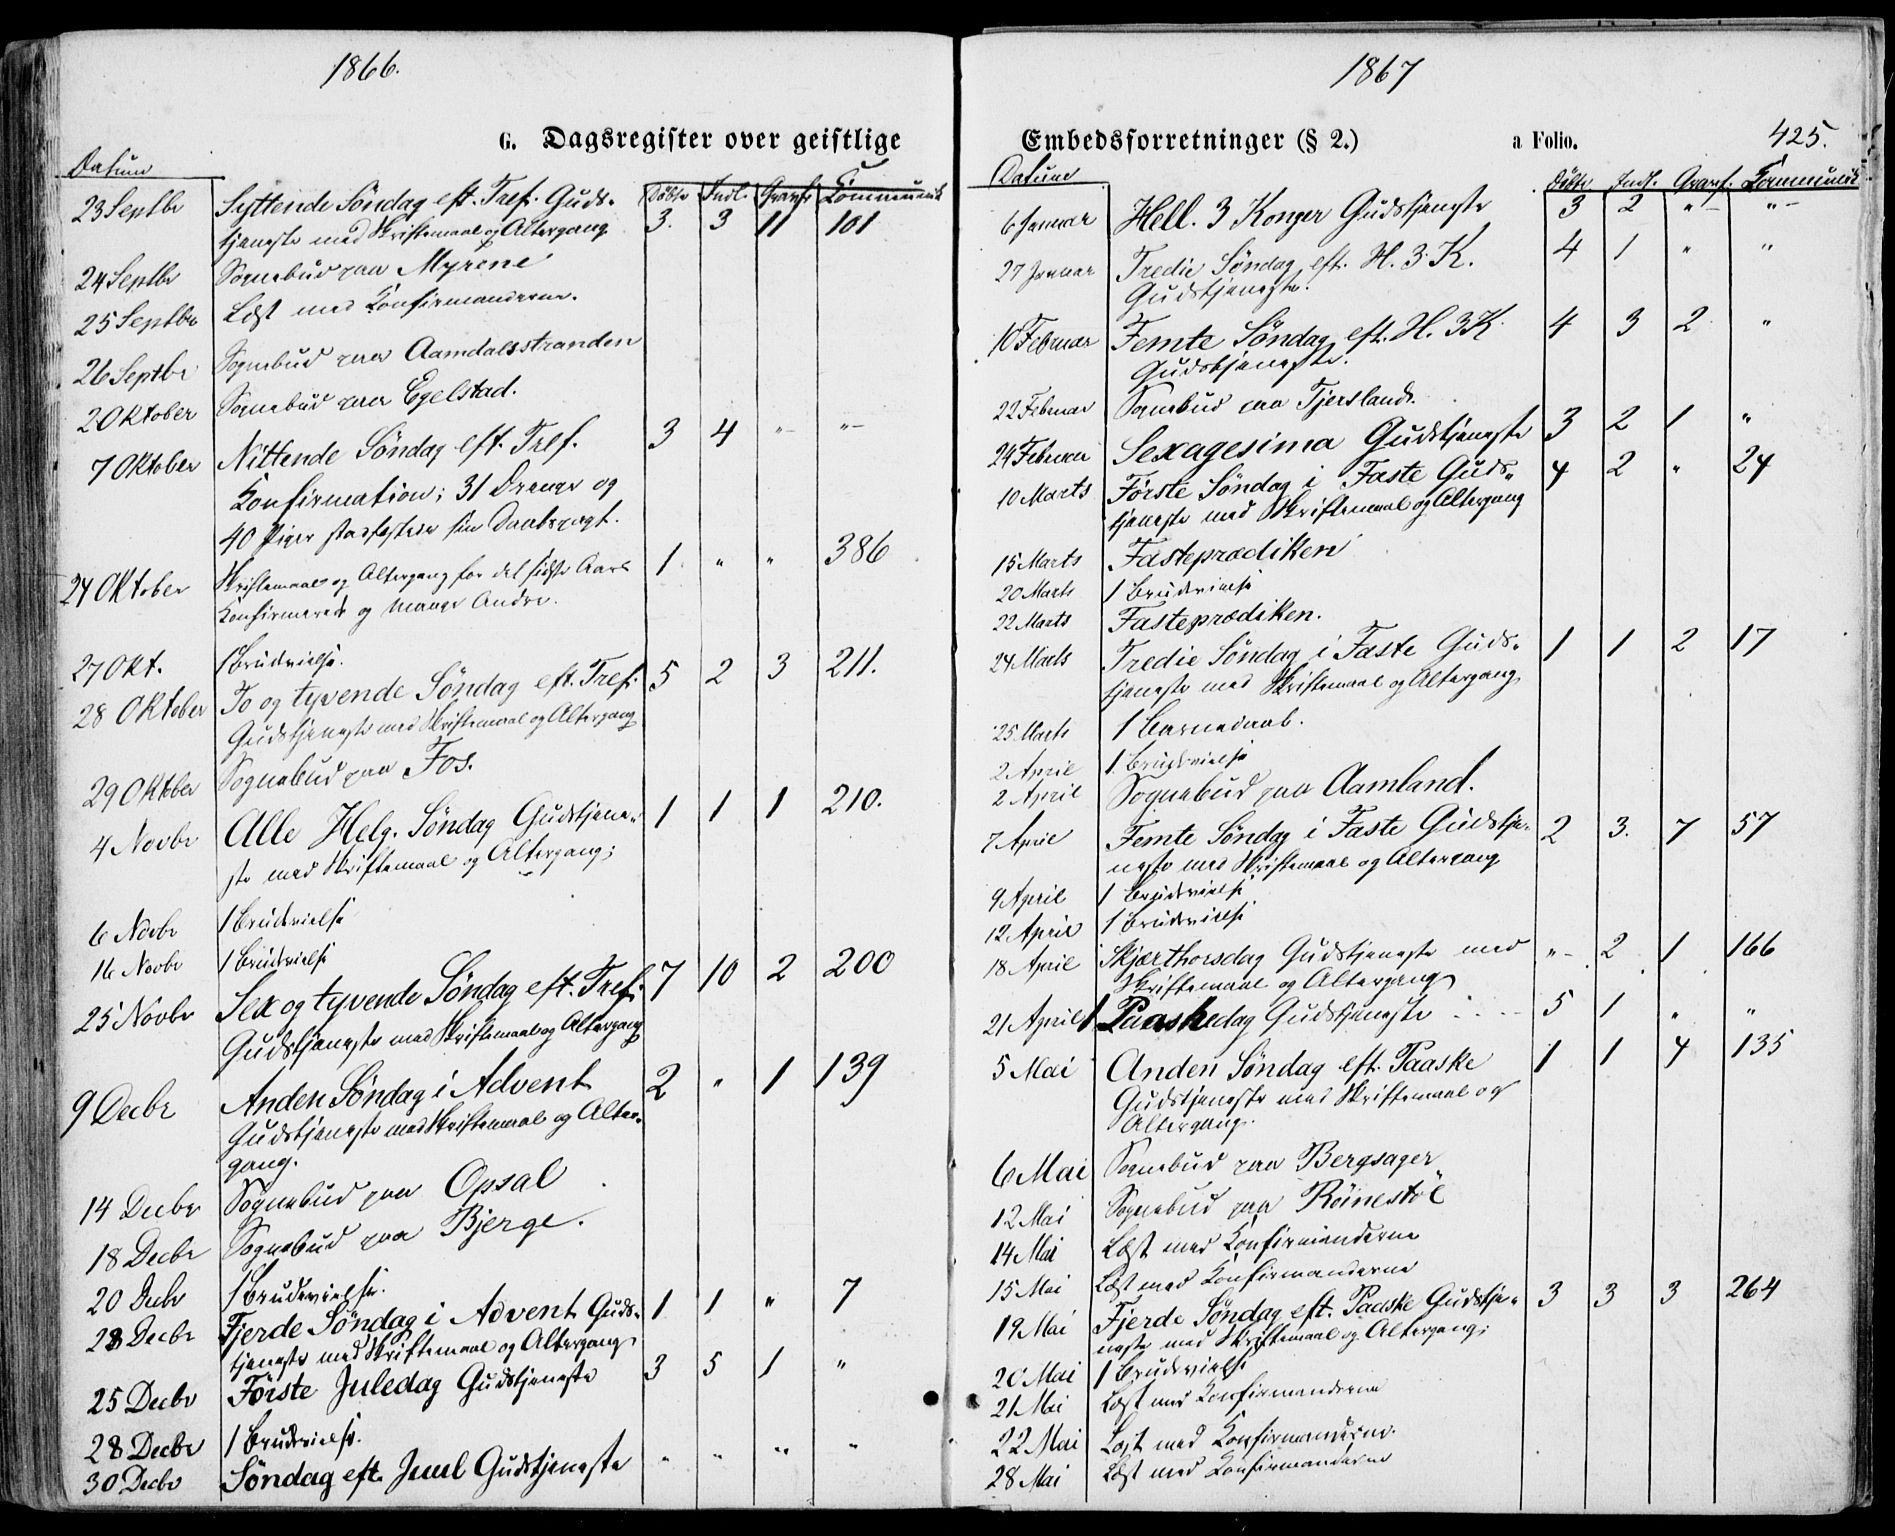 1866.
G. Dagsregister over geistlige
Datum Døbte Indl. Gravf. Communik
23 Septbr Syttende Søndag eft. Tref. Guds-
tjeneste med Skriftemaal og Altergang 3. 3 11 101
24 Septbr Sognebud paa Myrene
25 Septbr Læst med Konfirmanderne.
26 Septbr Sognebud paa Aamdalsstranden
2 Oktober Sognebud paa Egelstad.
7 Oktober Nittende Søndag eft. Tref. 3 4 "- "-
Konfirmation; 31 Drenge og
40 Piger stadfæstede sin Daabspagt.
24 Oktober Skriftemaal og Altergang for det sidste Aars 1 " " 386
Konfirmerede og mange Andre.
27 Okt. 1 Brudvielse.
28 Oktober To og tyvende Søndag eft. Tref. 5 2 3 211.
Gudstjeneste med Skriftemaal og Altergang
29 Oktober Sognebud paa Fos.
4 Novbr Alle Helg. Søndag Gudstjene- 1 1 1 210.
ste med Skriftemaal og Altergang;
6 Novbr 1 Brudvielse
16 Novbr 1 Brudvielse
25 Novbr Sex og tyvende Søndag eft. Tref. 7 10 2 200
Gudstjeneste med Skriftemaal og Altergang
9 Decbr Anden Søndag i Advent 2 " 1 139
Gudstjeneste med Skriftemaal og Alter-
gang.
14 Decbr Sognebud paa Opsal
18 Decbr Sognebud paa Bjerge.
20 Decbr 1 Brudevielse.
23 Decbr Fjerde Søndag i Advent Guds- 1 1 " 7
tjeneste med Skriftemaal og Altergang
25 Decbr Første Juledag Gudstjeneste 3 5 1 "
28 Decbr 1 Brudvielse.
30 Decbr Søndag eft. Juul Gudstjeneste " " " "
1867
Embedsforretninger (§ 2.) a Folio. 425.
Datum Døbte Indl. Gravf. Communik
6 Januar Hell. 3 Konger Gudstjeneste 3 2 "- "-
27 Januar Tredie Søndag eft. H. 3. K. 4 1 " "
Gudstjeneste.
10 Februar Femte Søndag eft. H. 3 K. 4 3 2 "
Gudstjeneste.
22 Februar Sognebud paa Tjersland.
24 Februar Sexagesima Gudstjeneste 3 2 1 "
10 Marts Første Søndag i Faste Guds- 4 2 " 24
tjeneste med Skriftemaal og Altergang
15 Marts Fasteprædiken
20 Marts 1 Brudvielse
22 Marts Fasteprædiken.
24 Marts Tredie Søndag i Faste Guds- 1 1 2 17
tjeneste med Skriftemaal og Altergang
25 Marts 1 Barnedaab.
2 April 1. Brudvielse
2 April Sognebud paa Aamland.
7 April Femte Søndag i Faste Gudstje- 2 3. 7 57
neste med Skriftemaal og Altergang
9 April 1 Brudvielse
12 April 1 Brudvielse
18 April Skjærthorsdag Gudstjeneste med "- 2 1 166
Skriftemaal og Altergang
21 April 1 Paaskedag Gudstjeneste 5 1 " "
5 Mai Anden Søndag eft. Paaske 1 1 4 135
Gudstjeneste med Skriftemaal og
Altergang.
6 Mai Sognebud paa Bergsager
12 Mai Sognebud paa Röinestöl
14 Mai Læst med Konfirmanderne
15 Mai Læst med Konfirmanderne
19 Mai Fjerde Søndag eft. Paaske Gudstje- 3 3 3 264
neste med Skriftemaal og Altergang;
20 Mai 1 Brudvielse
21 Mai Læst med Konfirmanderne
22 Mai Læst med Konfirmanderne.
28 Mai Læst med Konfirmanderne